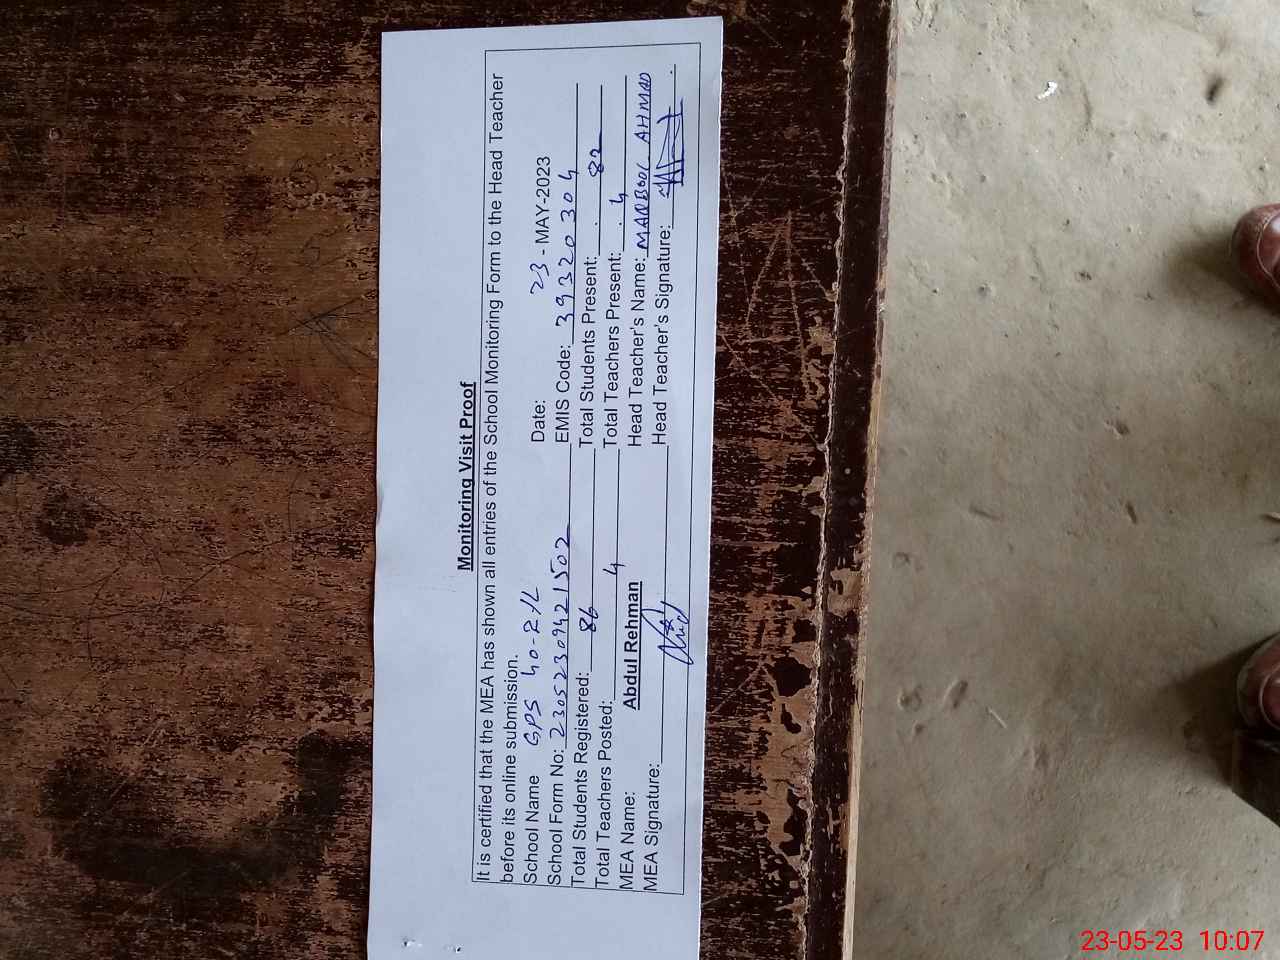 Monitoring Visit Proof
It is certified that the MEA has shown all entries of the School Monitoring Form to the Head Teacher
before its online submission.
School Name GPS 40-2-1L Date: 23 - MAY-2023
School Form No: 23052309421502 EMIS Code: 39320304
Total Students Registered: 86 Total Students Present: 82
Total Teachers Posted: 4 Total Teachers Present: 4
MEA Name: Abdul Rehman Head Teacher's Name: MAQBOOL AHMAD
MEA Signature: Head Teacher's Signature:
23-05-23 10:07